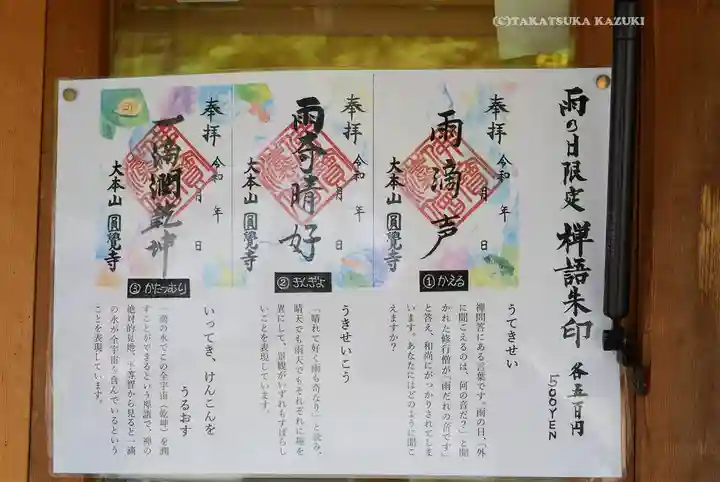 (C)TAKATSUKA KAZUKI
雨の日限定 禅語朱印 各五百円
500YEN
奉拝
雨滴声
令和 年 月 日
大本山 圓覺寺
①かえる
うてきせい
禅問答にある言葉です。雨の日、「外
に聞こえるのは、何の音だ?」と聞
かれた修行僧が「雨だれの音です」
と答え、和尚にがっかりされてしま
います。あなたにはどのように聞こ
えますか?
奉拝
雨奇晴好
令和 年 月 日
大本山 圓覺寺
②きんぎょ
うきせいこう
「晴れて好く雨も奇なり」と読み、
晴天でも雨天でもそれぞれに趣を
異にして、景観がいずれもすばらし
いことを表現しています。
奉拝
一滴潤乾坤
令和 年 月 日
大本山 圓覺寺
③かたつむり
いってき、けんこんを
うるおす
一滴の水でこの全宇宙(乾坤)を潤
すことができるという禅語で、禅の
絶対的見地、平等智から見ると一滴
の水が全宇宙を含んでいるという
ことを表現しています。